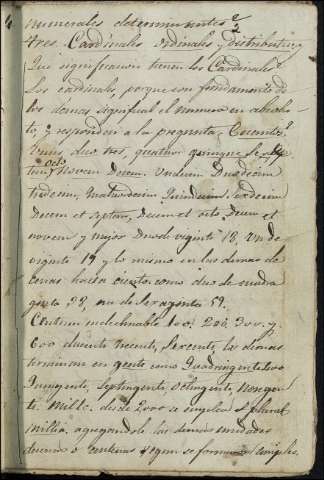 numerales determinantes
tres. Cardinales ordinales y distributivos
Que significacion tienen los Cardinales?
Los cardinales, porque son fundamento de
los demas significan el numero en absolu-
to, y responden a la pregunta,
Unus, duo tres, quatuor quinque Se
octo novem Decem. Undecim Duodecim
tredecim, quindecim,
Decem et septem, Decem et octo, Decem et
novem y mejor Duodeviginti 18, Un de
viginti 19 y lo mismo en las demas de
cenas hacia ciento. como duo de quadra
ginta 38, un de Sexaginta 59.
Centum indeclinable 100. 200. 300. y
600 ducenti trecenti, Sexcenti, los demas
terminan en genti como Quadringenti 400
Quingenti, Septingenti, Octingenti, Nongen-
ti. Mille. desde 2000 se emplea el plural
millia. agregandole los demas
decenas o centenas segun se forman simples.